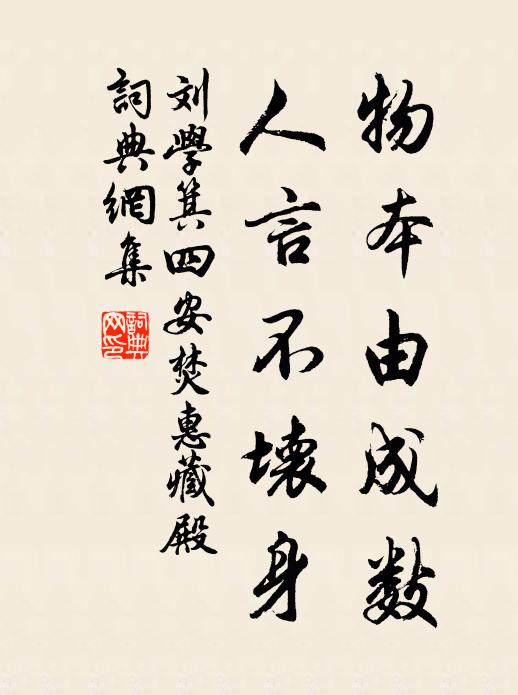 物本由成数
人言不壞身
刘學箕四安焚惠藏殿
詞典網集
詞典网印